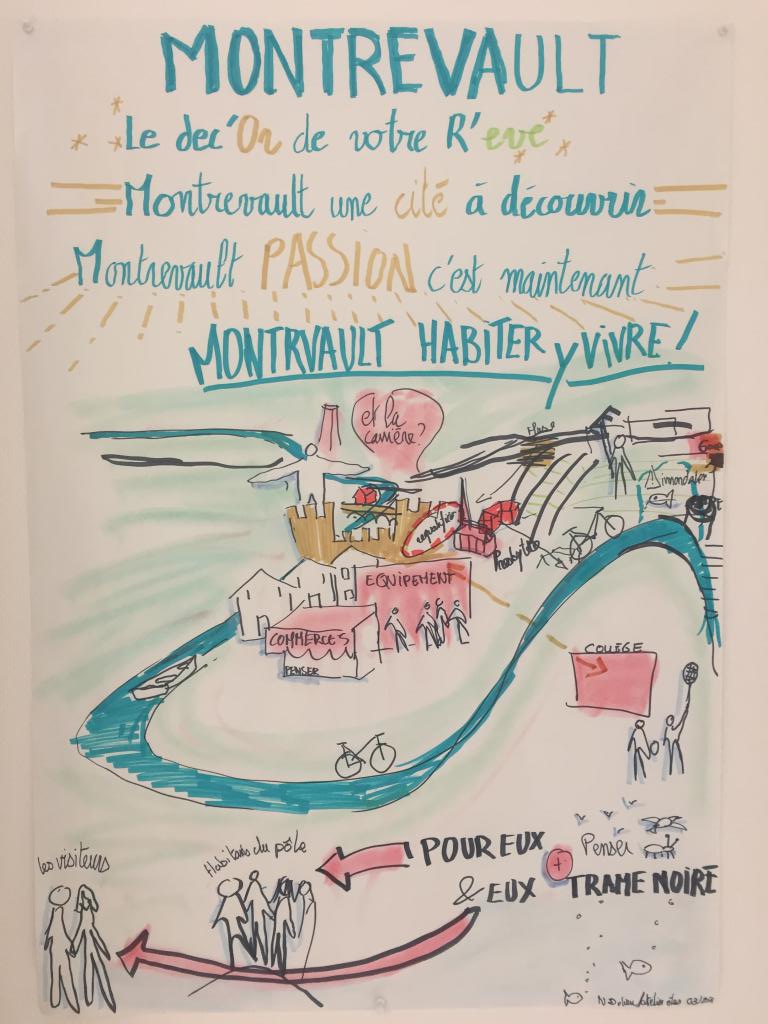 MONTREVAULT
Le dec'Or de votre R'eve
Montrevault une cité à découvrir
Montrevault PASSION c'est maintenant
MONTRVAULT HABITER y VIVRE !
et la
carrière ?
innondable
requalifier
Presbytère
EQUIPEMENT
COMMERCES
PENSER
COLLÈGE
les visiteurs
Habitans du pôle
POUR EUX
& EUX
+
Penser
TRAME NOIRE